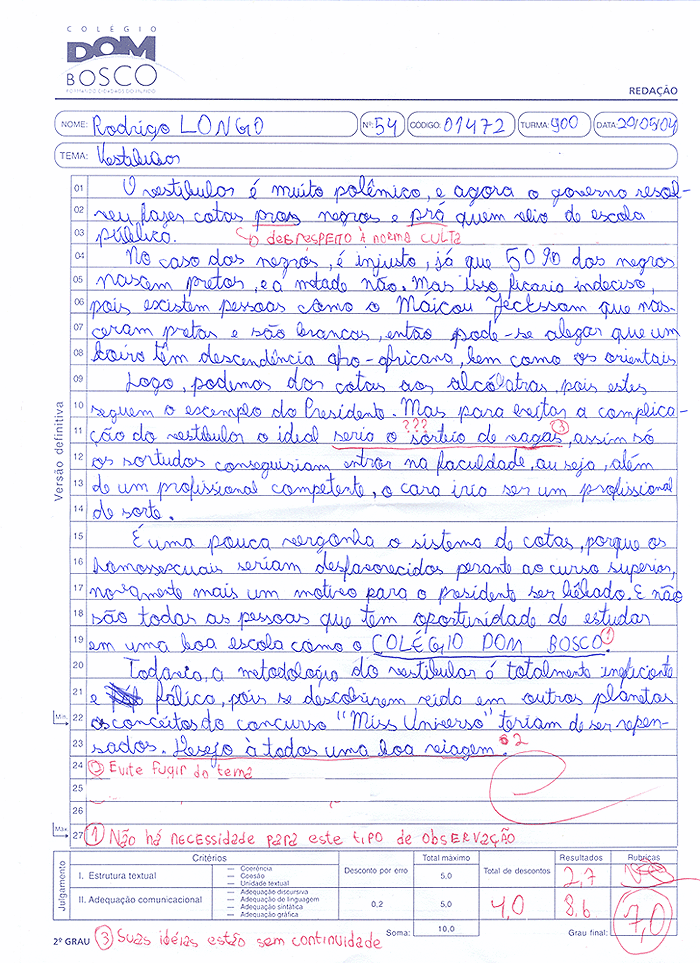 COLÉGIO
DOM
BOSCO
FORMANDO CIDADÃOS DO MUNDO
REDAÇÃO
NOME: Rodrigo LONGO Nº: 54 CÓDIGO: 01472 TURMA: 900 DATA: 29/05/04
TEMA: Vestibular
01 O vestibular é muito polêmico, e agora o governo resol-
02 veu fazer cotas pros negros e prá quem veio de escola
03 pública. desrespeito à norma culta
04 No caso dos negros, é injusto, já que 50% dos negros
05 nascem pretos, e a metade não. Mas isso ficaria indeciso,
06 pois existem pessoas como o Máicou Jeckssom que nas-
07 ceram pretas e são brancas, então pode-se alegar que um
08 bairo têm descendência afro-africana, bem como os orientais
09 Logo, podemos dar cotas aos alcoólatras, pois estes
10 seguem o exemplo do Presidente. Mas para evitar a complica-
???
11 ção do vestibular o ideal seria o sorteio de vagas, assim só 3
12 os sortudos conseguiriam entrar na faculdade, ou seja, além
13 de um profissional competente, o cara iria ser um profissional
14 de sorte.
15 É uma pouca vergonha o sistema de cotas, porque os
16 homossexuais seriam desfavorecidos perante ao curso superior,
17 novamente mais um motivo para o presidente ser bêbado. E não
18 são todas as pessoas que tem oportunidade de estudar
19 em uma boa escola como o COLÉGIO DOM BOSCO. 1
20 Todavia, a metodologia do vestibular é totalmente ineficiente
21 e fálica, pois se descobrirem vida em outros planetas
Min. 22 os conceitos do concurso "Miss Universo" teriam de ser repen-
23 sados. Desejo à todos uma boa viagem. 2
24 2 Evite fugir do tema
25
26
Máx. 27 1 Não há necessidade para este tipo de observação
Versão definitiva
Julgamento
Critérios Desconto por erro Total máximo Total de descontos Resultados Rubricas
I. Estrutura textual — Coerência — Coesão — Unidade textual 5,0 2,7
II. Adequação comunicacional — Adequação discursiva — Adequação de linguagem — Adequação sintática — Adequação gráfica 0,2 5,0 4,0 8,6
Soma: 10,0 Grau final: 7,0
2º GRAU 3 Suas idéias estão sem continuidade